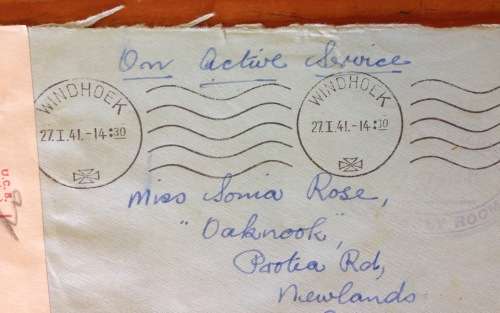 On Active Service
WINDHOEK
27.I.41.-14:30
WINDHOEK
27.I.41.-14:30
Miss Sonia Rose,
"Oaknook",
Protea Rd,
Newlands
U.C.